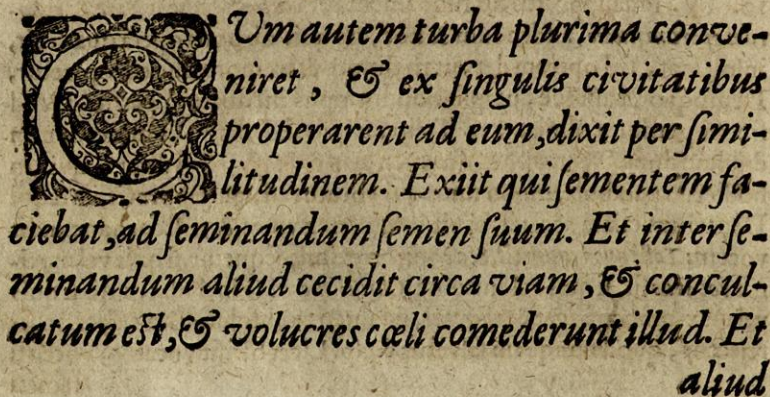 CUm autem turba plurima conve-
niret, & ex ſingulis civitatibus
properarent ad eum, dixit per ſimi-
litudinem. Exiit qui ſementem fa-
ciebat, ad ſeminandum ſemen ſuum. Et inter ſe-
minandum aliud cecidit circa viam, & concul-
catum eſt, & volucres cœli comederunt illud. Et
aliud